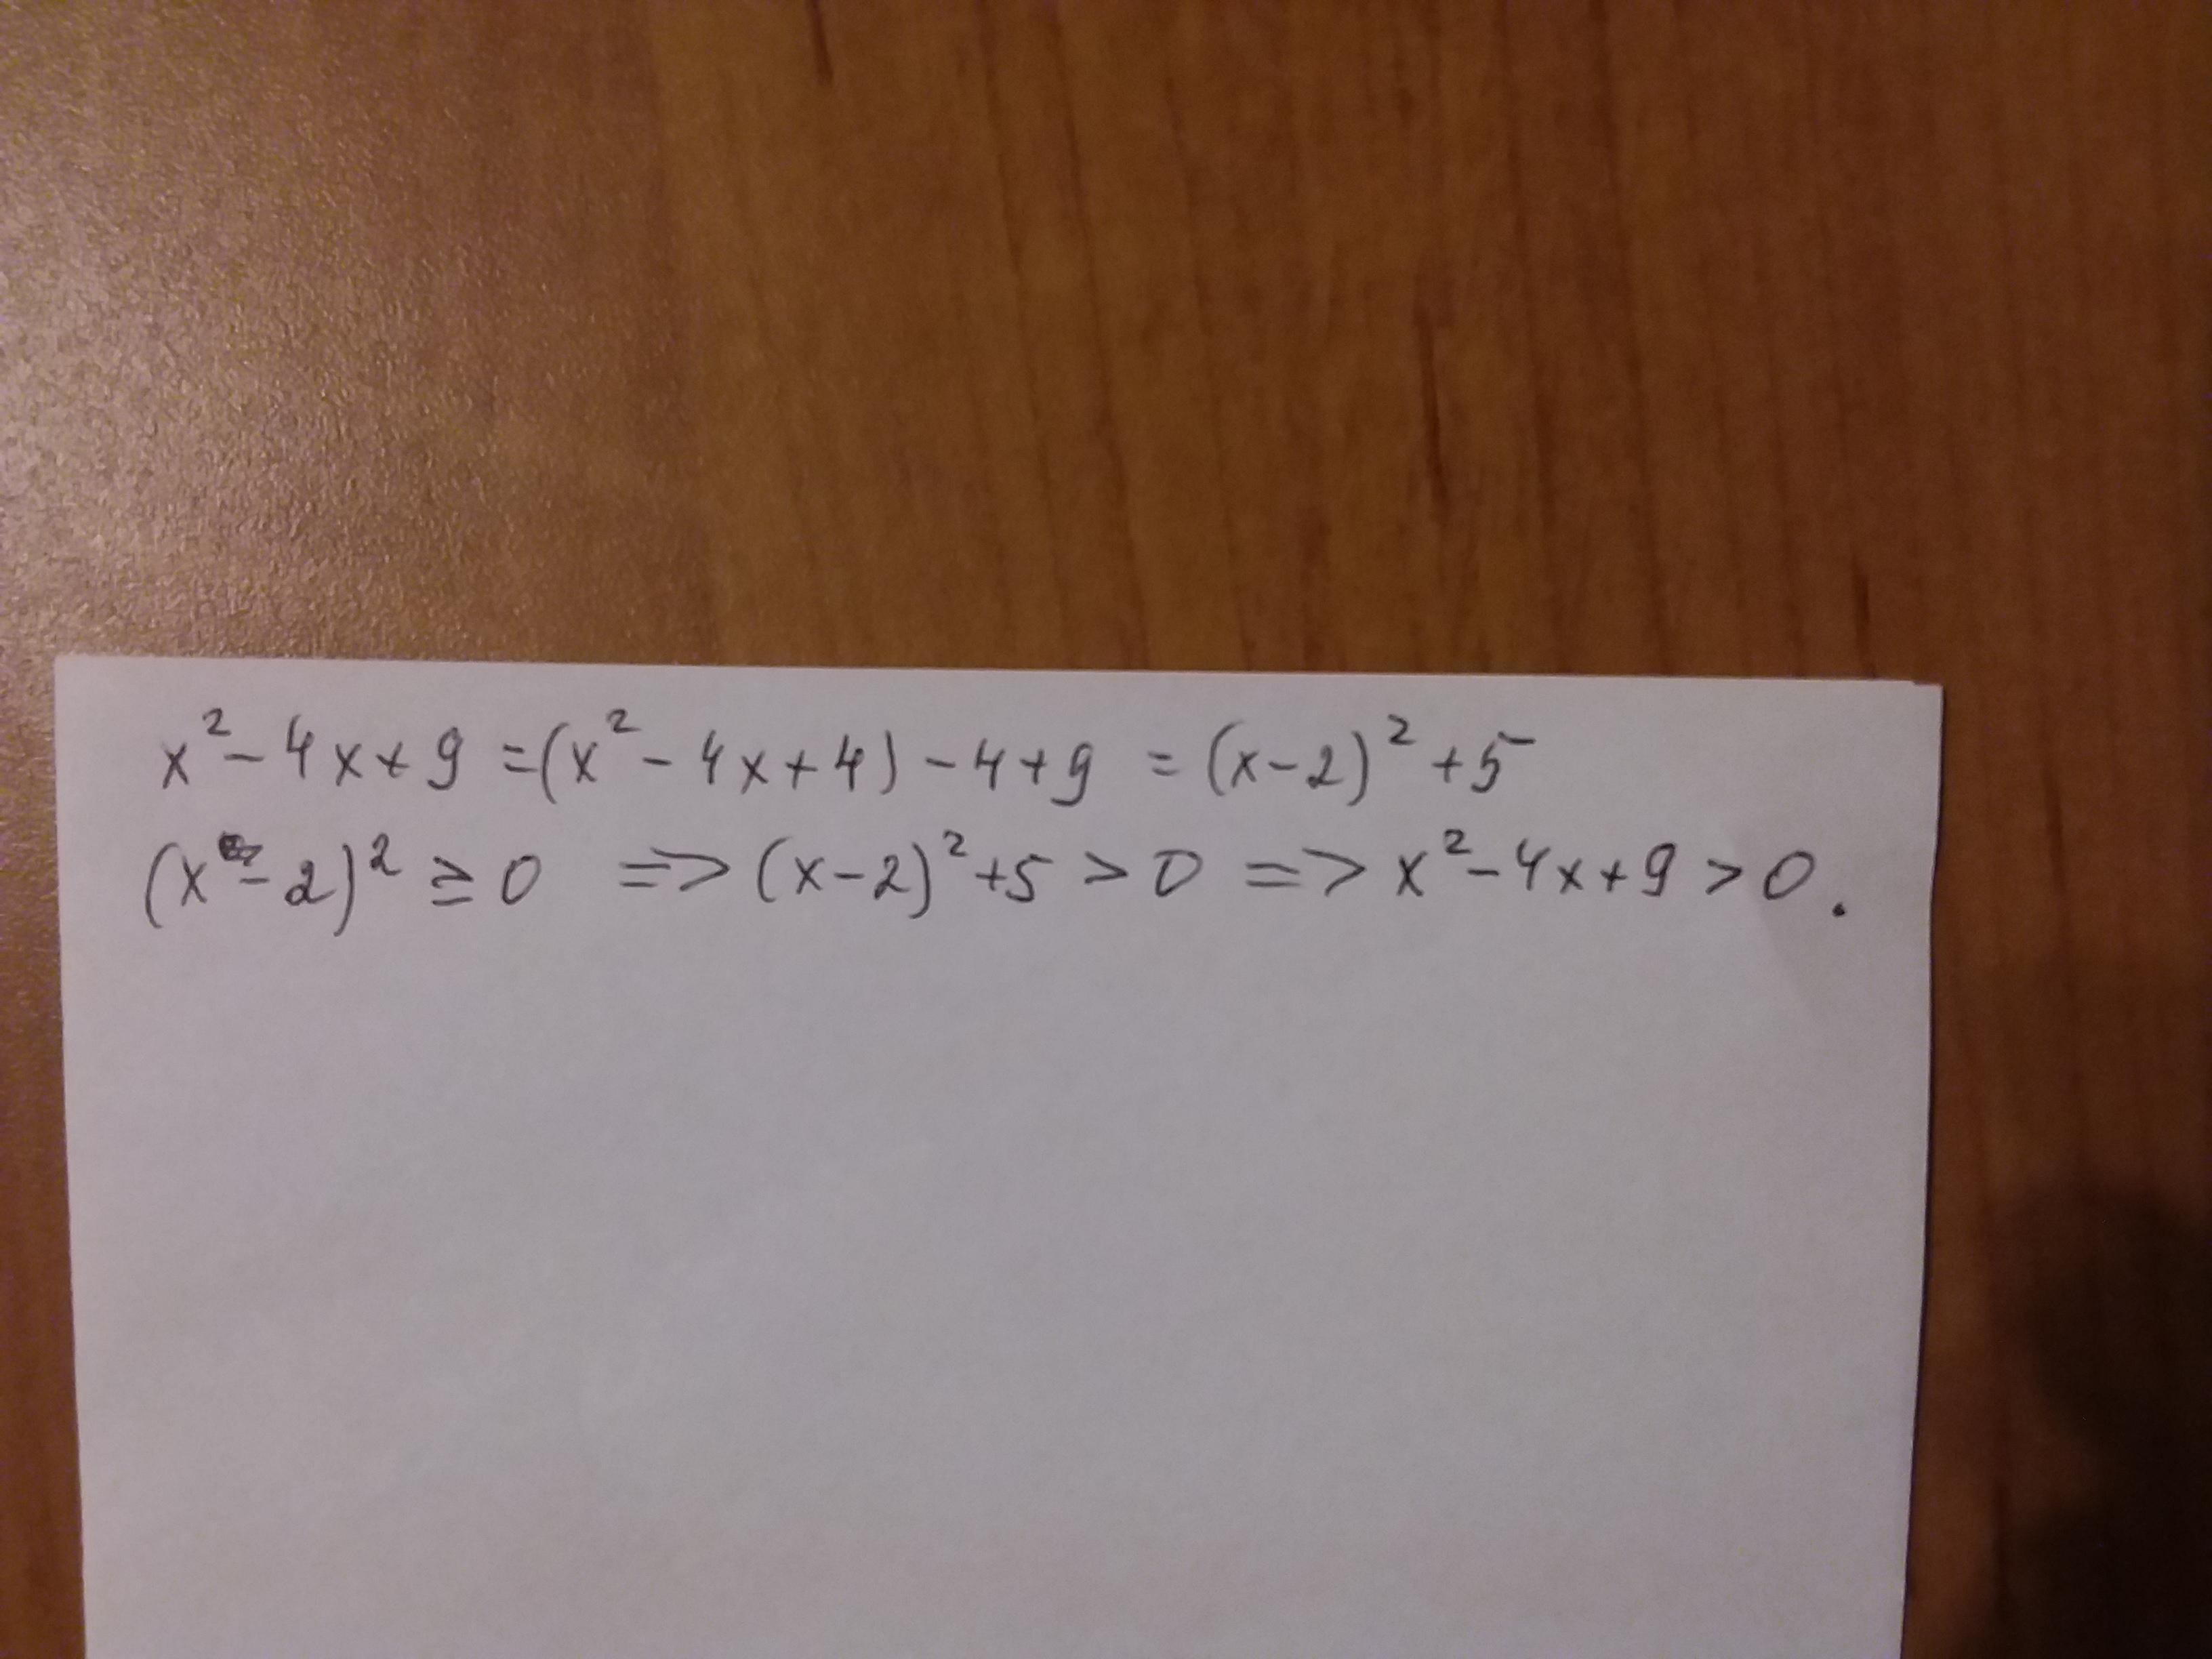 x² - 4x + 9 = (x² - 4x + 4) - 4 + 9 = (x - 2)² + 5
(x - 2)² ≥ 0 => (x - 2)² + 5 > 0 => x² - 4x + 9 > 0.